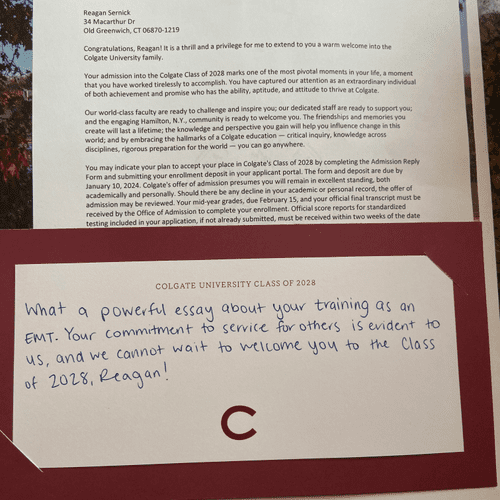 Reagan Sernick
34 Macarthur Dr
Old Greenwich, CT 06870-1219
Congratulations, Reagan! It is a thrill and a privilege for me to extend to you a warm welcome into the
Colgate University family.
Your admission into the Colgate Class of 2028 marks one of the most pivotal moments in your life, a moment
that you have worked tirelessly to accomplish. You have captured our attention as an extraordinary individual
of both achievement and promise who has the ability, aptitude, and attitude to thrive at Colgate.
Our world-class faculty are ready to challenge and inspire you; our dedicated staff are ready to support you;
and the engaging Hamilton, N.Y., community is ready to welcome you. The friendships and memories you
create will last a lifetime; the knowledge and perspective you gain will help you influence change in this
world; and by embracing the hallmarks of a Colgate education — critical inquiry, knowledge across
disciplines, rigorous preparation for the world — you can go anywhere.
You may indicate your plan to accept your place in Colgate's Class of 2028 by completing the Admission Reply
Form and submitting your enrollment deposit in your applicant portal. The form and deposit are due by
January 10, 2024. Colgate's offer of admission presumes you will remain in excellent standing, both
academically and personally. Should there be any decline in your academic or personal record, the offer of
admission may be reviewed. Your mid-year grades, due February 15, and your official final transcript must be
received by the Office of Admission to complete your enrollment. Official score reports for standardized
testing included in your application, if not already submitted, must be received within two weeks of the date
COLGATE UNIVERSITY CLASS OF 2028
What a powerful essay about your training as an
EMT. Your commitment to service for others is evident to
us, and we cannot wait to welcome you to the Class
of 2028, Reagan!
C